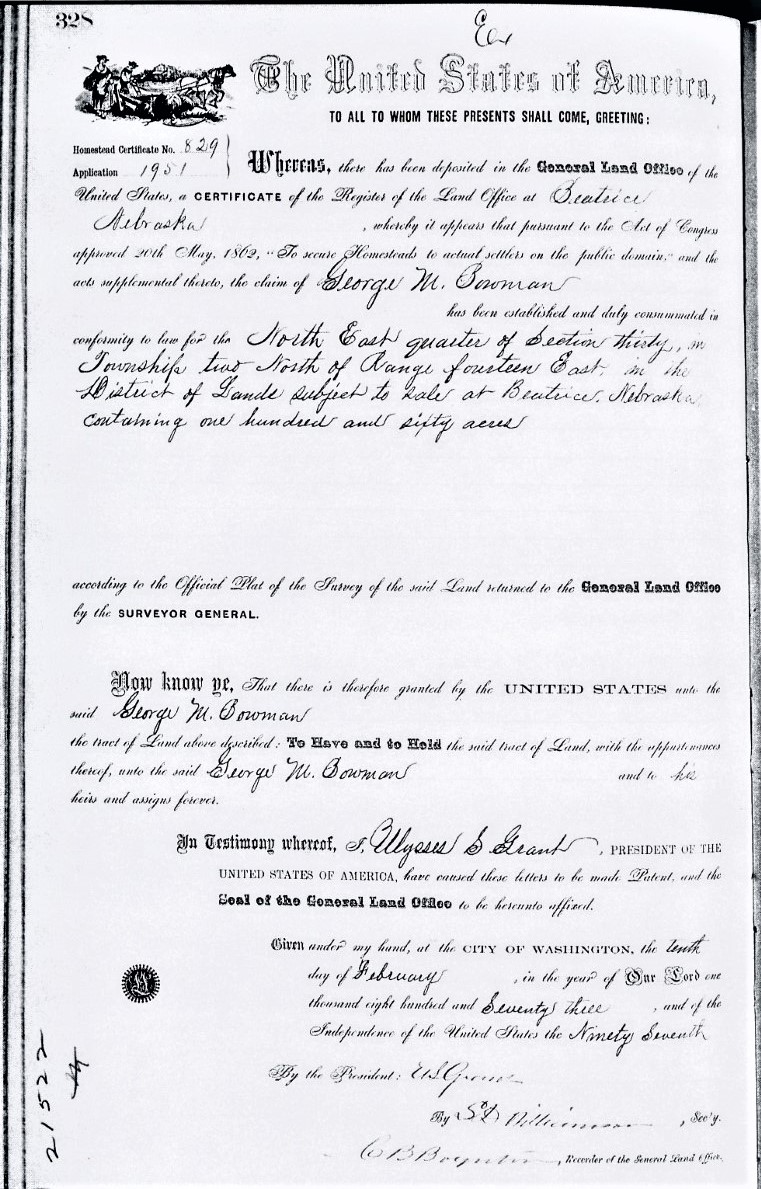 328
The United States of America,
TO ALL TO WHOM THESE PRESENTS SHALL COME, GREETING:
Homestead Certificate No. 829
Application 1951
Whereas, there has been deposited in the General Land Office of the
United States, a CERTIFICATE of the Register of the Land Office at Beatrice
Nebraska , whereby it appears that pursuant to the Act of Congress
approved 20th May, 1862, "To secure Homesteads to actual settlers on the public domain," and the
acts supplemental thereto, the claim of George M. Bowman
has been established and duly consummated in
conformity to law for the North East quarter of Section thirty, in
Township two North of Range fourteen East, in the
District of Lands subject to sale at Beatrice, Nebraska
containing one hundred and sixty acres
according to the Official Plat of the Survey of the said Land returned to the General Land Office
by the SURVEYOR GENERAL.
Now know ye, That there is therefore granted by the UNITED STATES unto the
said George M. Bowman
the tract of Land above described: To Have and to Hold the said tract of Land, with the appurtenances
thereof, unto the said George M. Bowman and to his
heirs and assigns forever.
In Testimony whereof, I, Ulysses S Grant , PRESIDENT OF THE
UNITED STATES OF AMERICA, have caused these letters to be made Patent, and the
Seal of the General Land Office to be hereunto affixed.
Given under my hand, at the CITY OF WASHINGTON, the tenth
day of February , in the year of Our Lord one
thousand eight hundred and Seventy three , and of the
Independence of the United States the Ninety Seventh
By the President: U S Grant
By , Sec'y.
C B Boynton , Recorder of the General Land Office.
21522